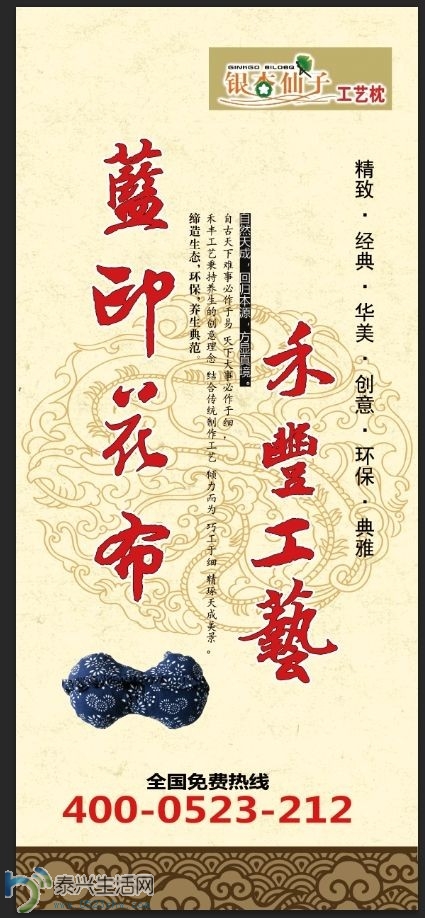 GINKGO BILOBQ
银杏仙子工艺枕
精致·经典·华美·创意·环保·典雅
禾豐工藝
自然天成，回归本源，方显真境。
自古天下难事必作于易 天下大事必作于细，
禾丰工艺秉持养生的创意理念 结合传统制作工艺 倾力而为 巧工于细 精琢天成美景。
缔造生态，环保，养生典范。
藍印花布
全国免费热线
400-0523-212
泰兴生活网